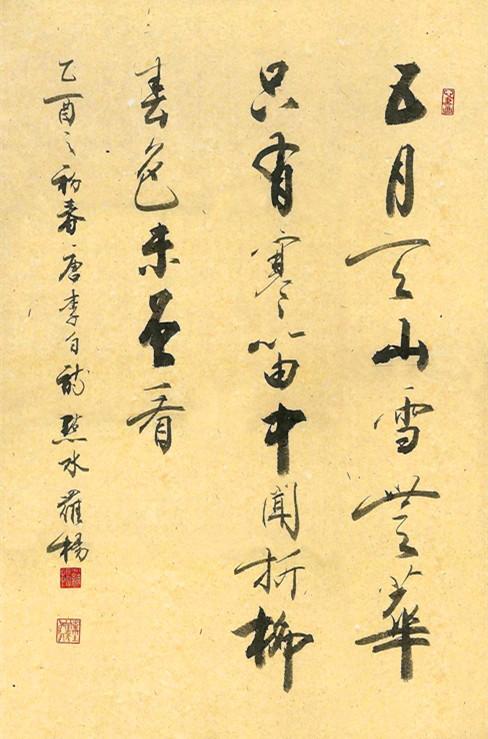 五月天山雪無華
只有寒笛中聞折柳
春色未曾看
乙酉之初春唐李白詩水羅楊